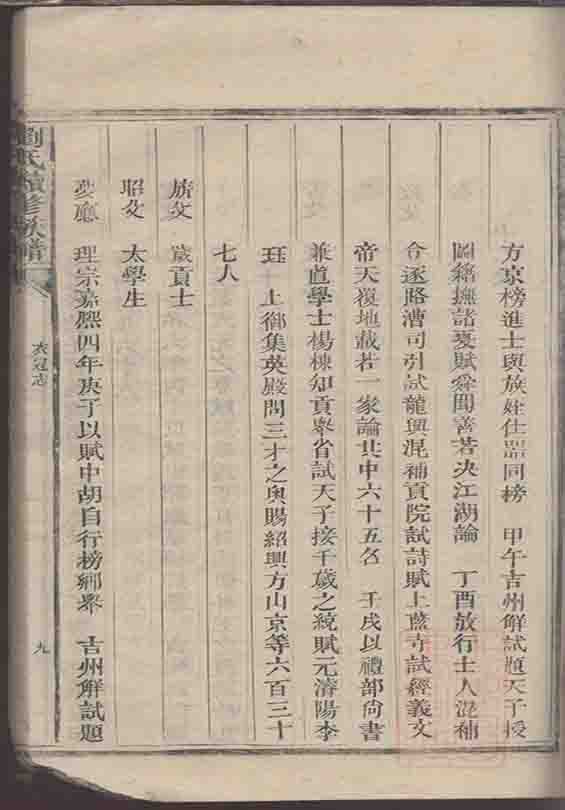 方京榜進士與族姓仕器同榜　甲午吉州解試題天子授
圖鎔撫諸夏賦舜聞善若决江湖論　丁酉放行士人混補
令逐路漕司引試龍興混補貢院試詩賦上藍寺試經義文
帝天覆地載若一家論共中六十五名　壬戌以禮部尙書
兼直學士楊棟知貢舉省試天子接千歲之統賦元濬陽李
珏　上御集英殿問三才之奥賜紹興方山京等六百三十
七人
族文　歲貢士
昭文　太學生
夢應　理宗嘉熙四年庚子以賦中胡自行榜鄉舉　吉州解試題
劉氏續修族譜
衣冠志
九